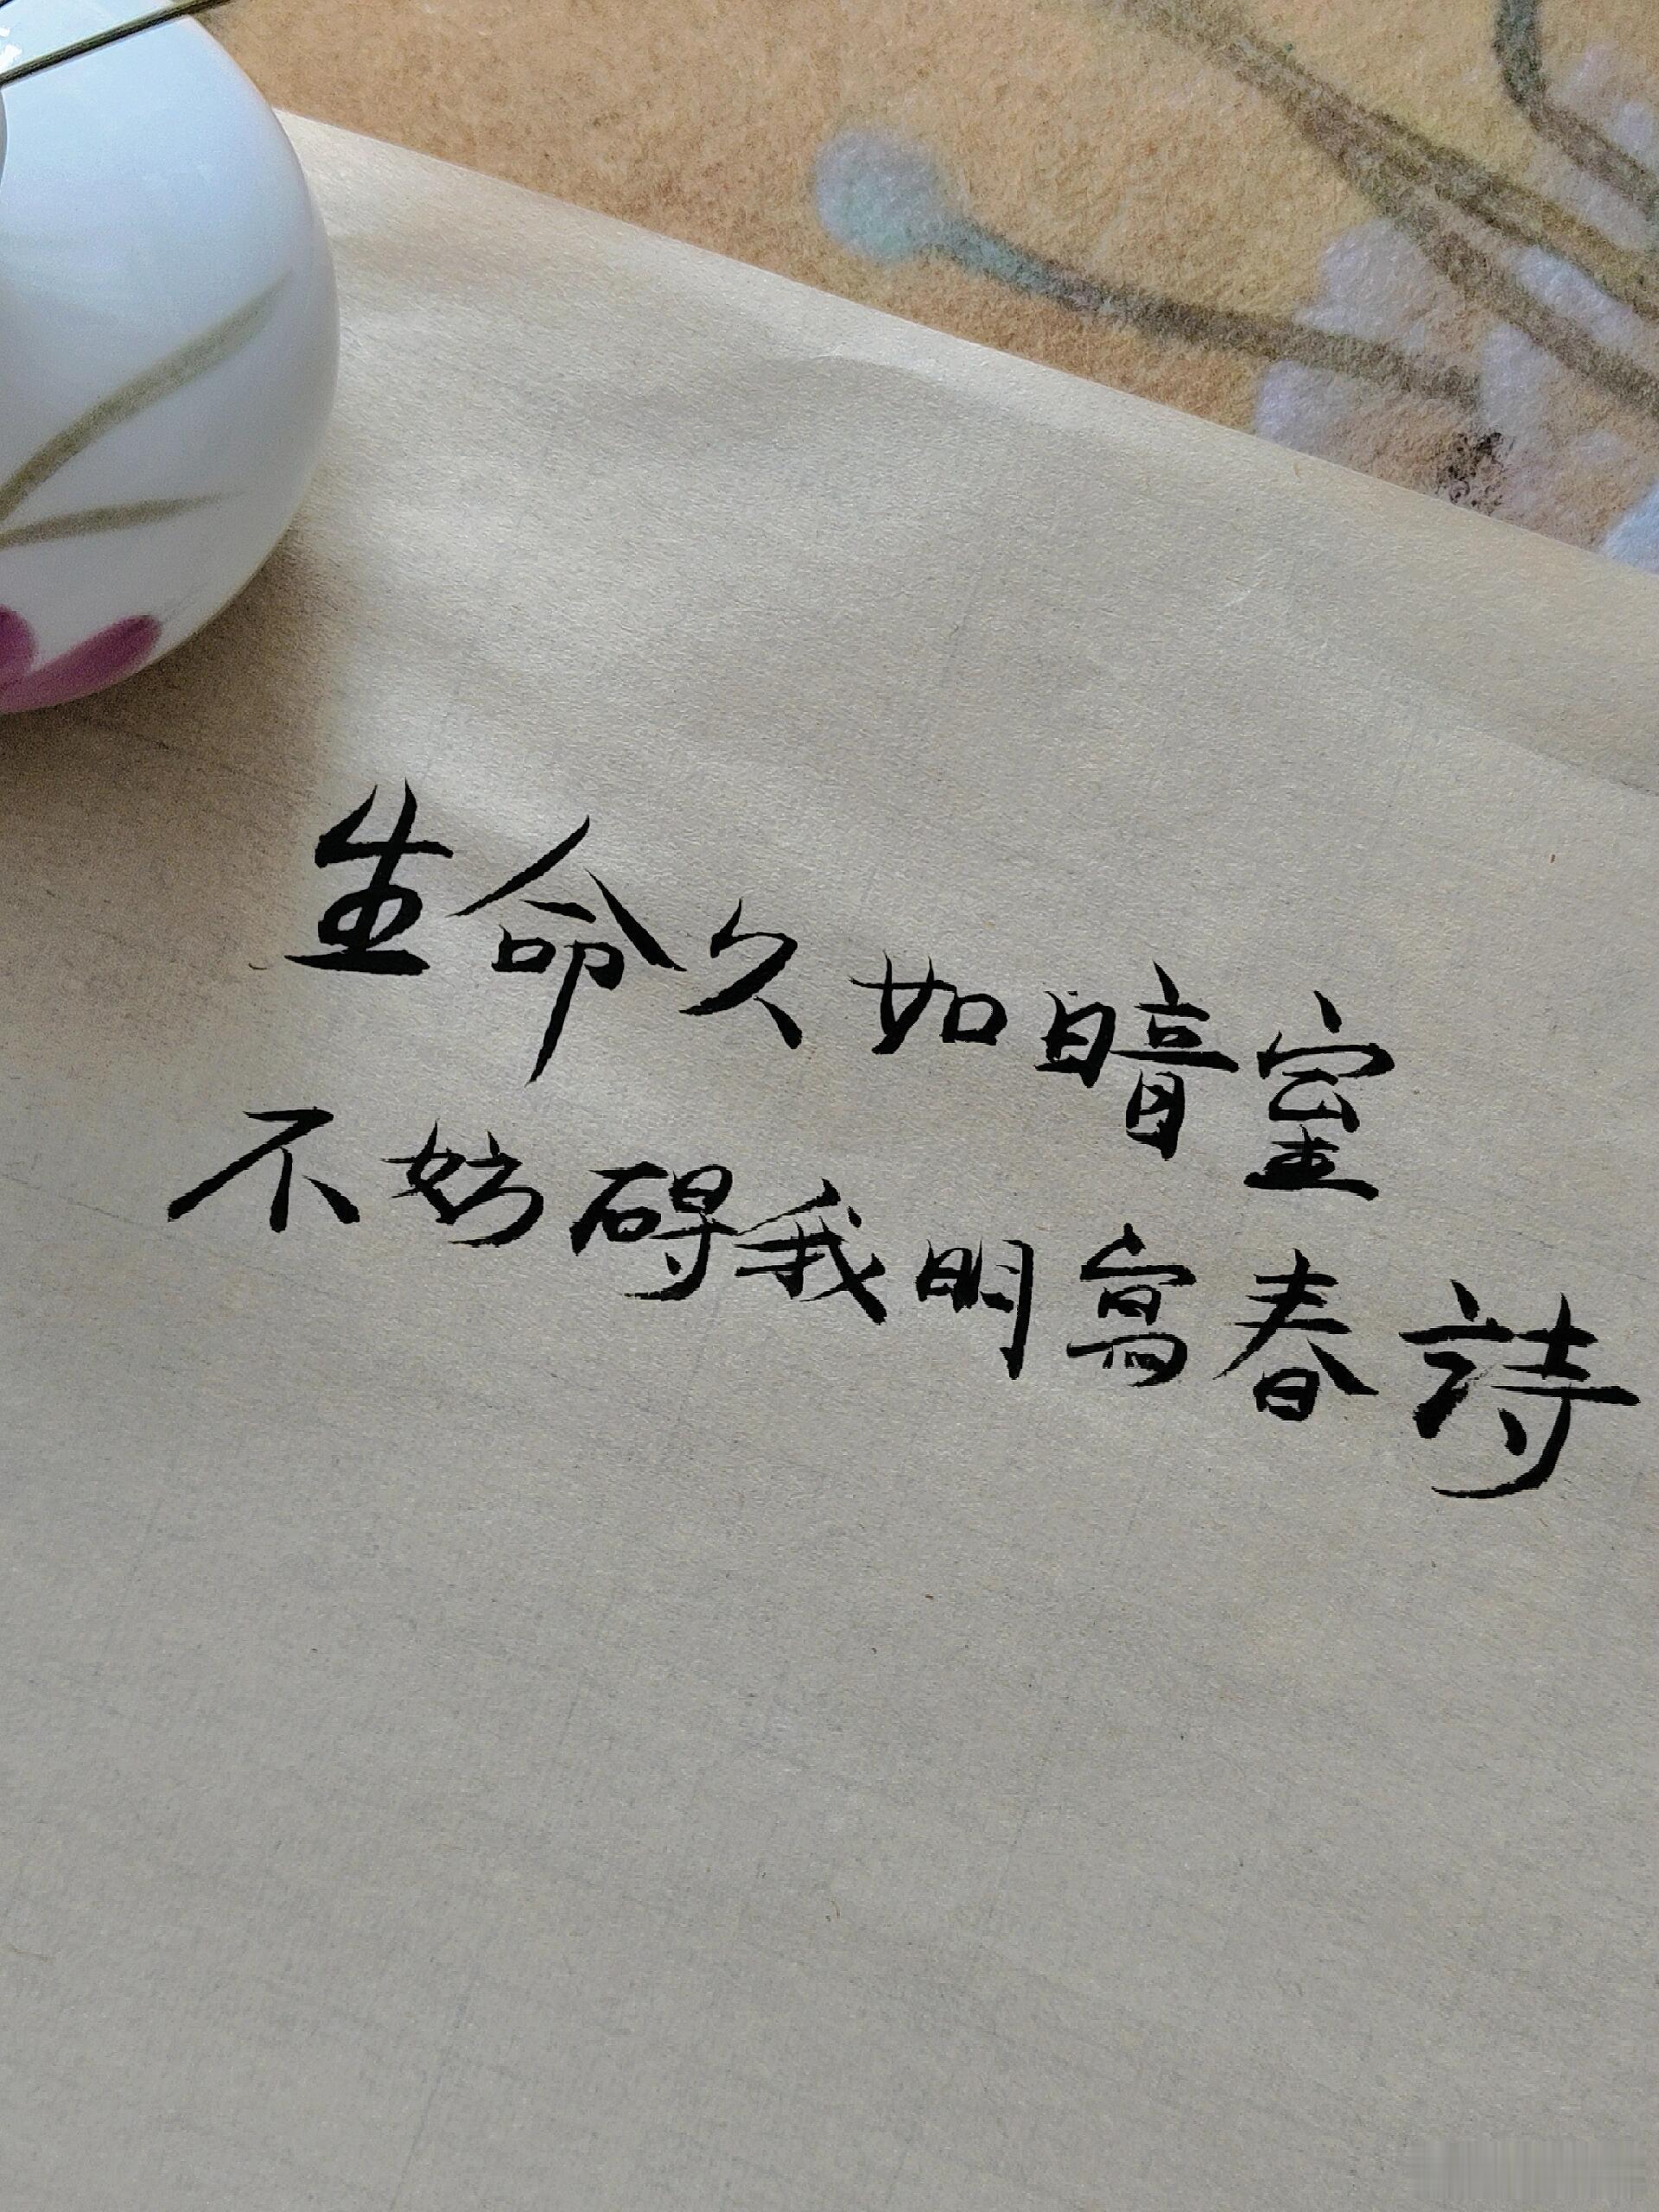 生命久如暗室
不妨碍我明寫春詩